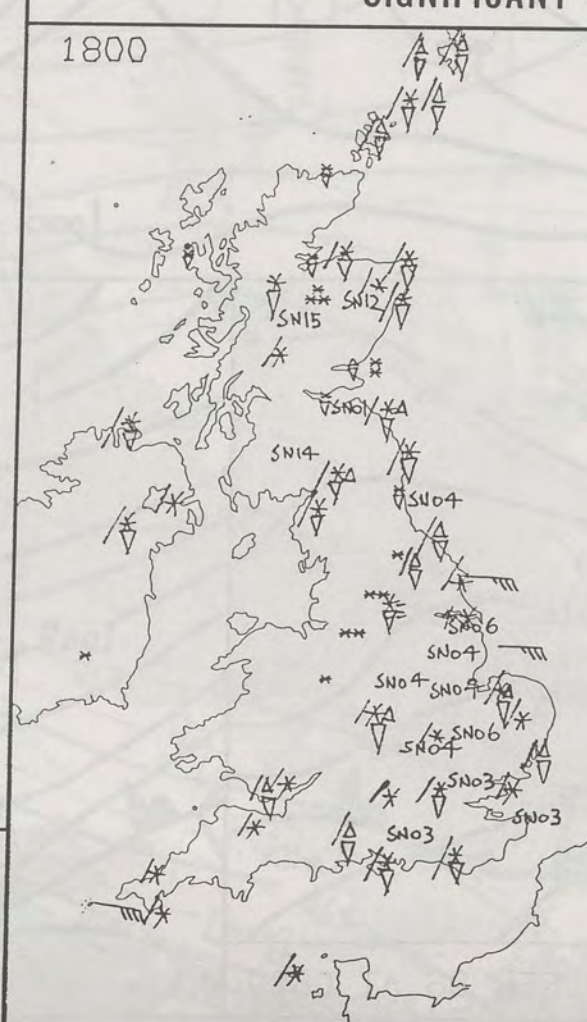 SIGNIFICANT
1800
SN12
SN15
SN01
SN14
SN04
SN06
SN04
SN04 SN04
SN06
SN04
SN03
SN03
SN03